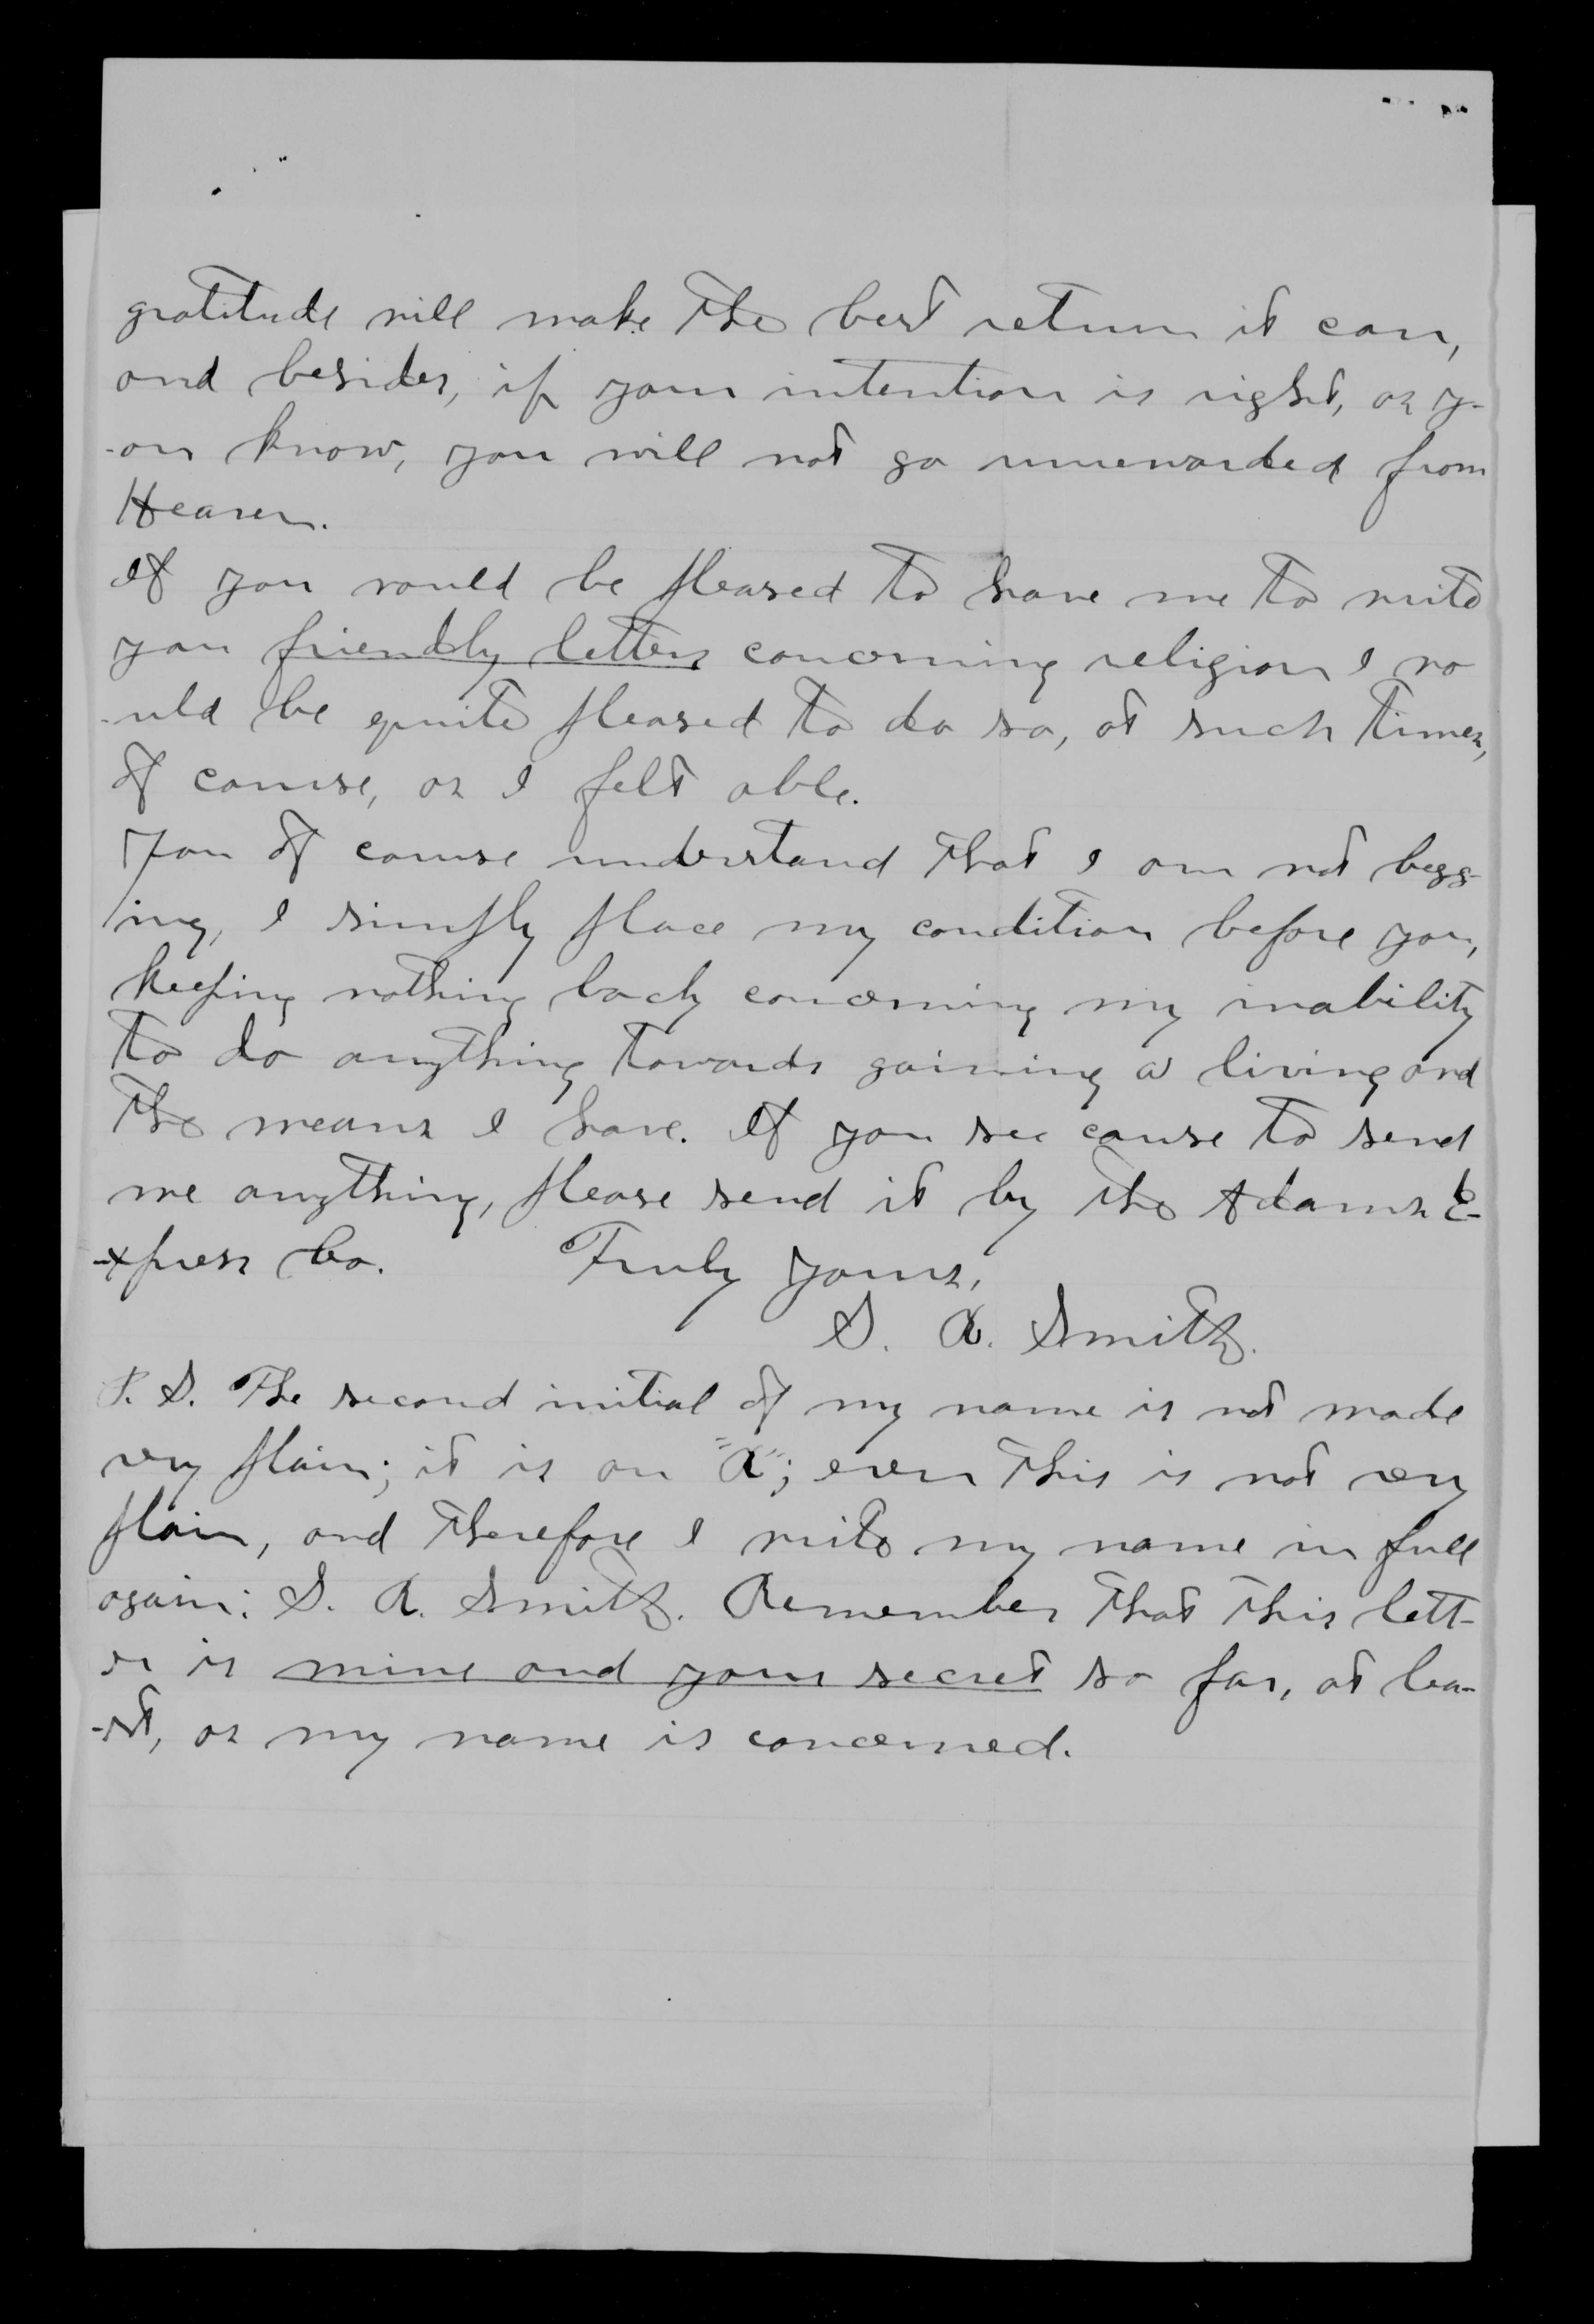 gratitude will make the best return it can,
and besides, if your intention is right, as y-
-ou know, you will not go unrewarded from
Heaven.
If you would be pleased to have me to write
you friendly letters concerning religion I wo
-uld be quite pleased to do so, at such times,
of course, as I felt able.
You of course understand that I am not begg-
ing, I simply place my condition before you,
keeping nothing back concerning my inability
to do anything towards gaining a living and
the means I have. If you see cause to send
me anything, please send it by the Adams E-
-xpress Co. Truly yours,
S. R. Smith.
P. S. The second initial of my name is not made
very plain; it is an "R"; even this is not very
plain, and therefore I write my name in full
again: S. R. Smith. Remember that this lett-
er is mine and your secret so far, at lea-
-st, as my name is concerned.